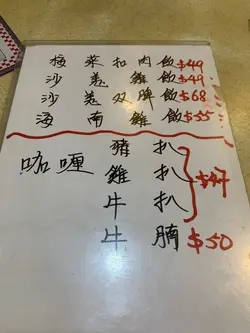 梅菜扣肉飯$49
沙羌雞飯$49
沙羌双脾飯$68
海南雞飯$55
咖喱
豬扒
雞扒
牛扒
$47
牛腩$50